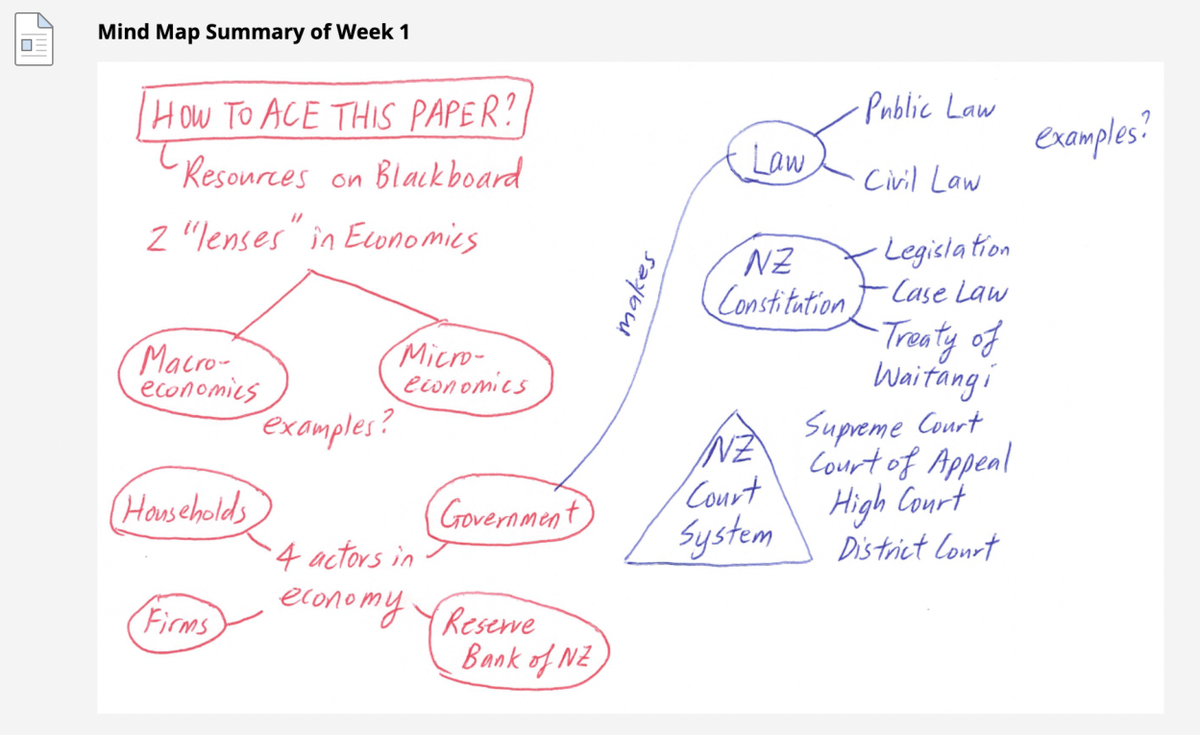 Mind Map Summary of Week 1
HOW TO ACE THIS PAPER?
Resources on Blackboard
2 "lenses" in Economics
Macro-
economics
Micro-
economics
examples?
Households
Government
4 actors in
economy
Firms
Reserve
Bank of NZ
makes
Law
Public Law
Civil Law
examples?
NZ
Constitution
Legislation
Case Law
Treaty of
Waitangi
NZ
Court
System
Supreme Court
Court of Appeal
High Court
District Court